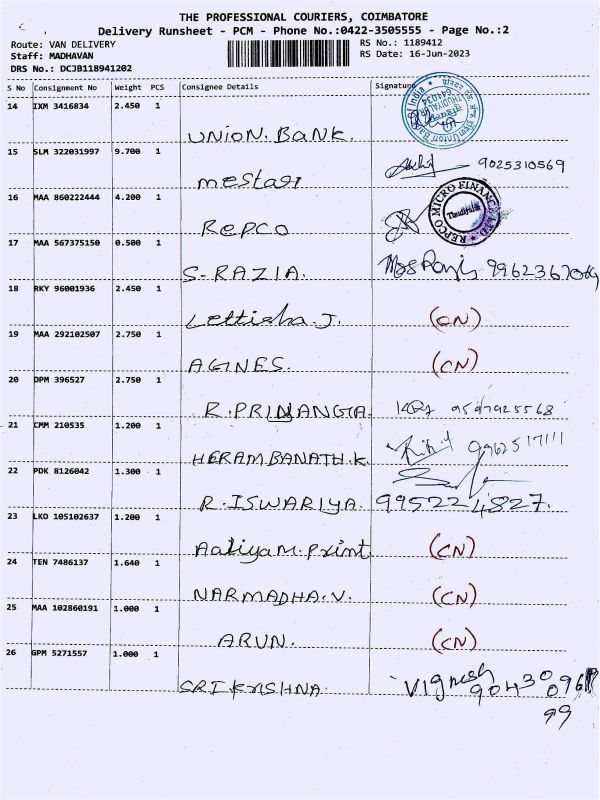 THE PROFESSIONAL COURIERS, COIMBATORE
Delivery Runsheet - PCM - Phone No.:0422-3505555 - Page No.:2
Route: VAN DELIVERY RS No.: 1189412
Staff: MADHAVAN RS Date: 16-Jun-2023
DRS No.: DCJB118941202
S No Consignment No Weight PCS Consignee Details Signature
14 IXM 3416834 2.450 1
UNION. BANK.
15 SLM 322031997 9.700 1
9025310569
mestasr
16 MAA 860222444 4.200 1
REPCO MICRO FINANCE LTD
REPCO
17 MAA 567375150 0.500 1
S-RAZIA.
18 RKY 96001936 2.450 1
Lettisha J. (CN)
19 MAA 292102507 2.750 1
AGINES. (CN)
20 DPM 396527 2.750 1
R.PRINANGIA.
21 CMM 210535 1.200 1
HERAMBANATH.K.
22 PDK 8126042 1.300 1
R.ISWARIYA. 9952224827.
23 LKO 105102637 1.200 1
Aaliya M. Print (CN)
24 TEN 7486137 1.640 1
NARMADHA.V. (CN)
25 MAA 102860191 1.000 1
ARUN. (CN)
26 GPM 5271557 1.000 1
SRIKRISHNA. Vignesh
99